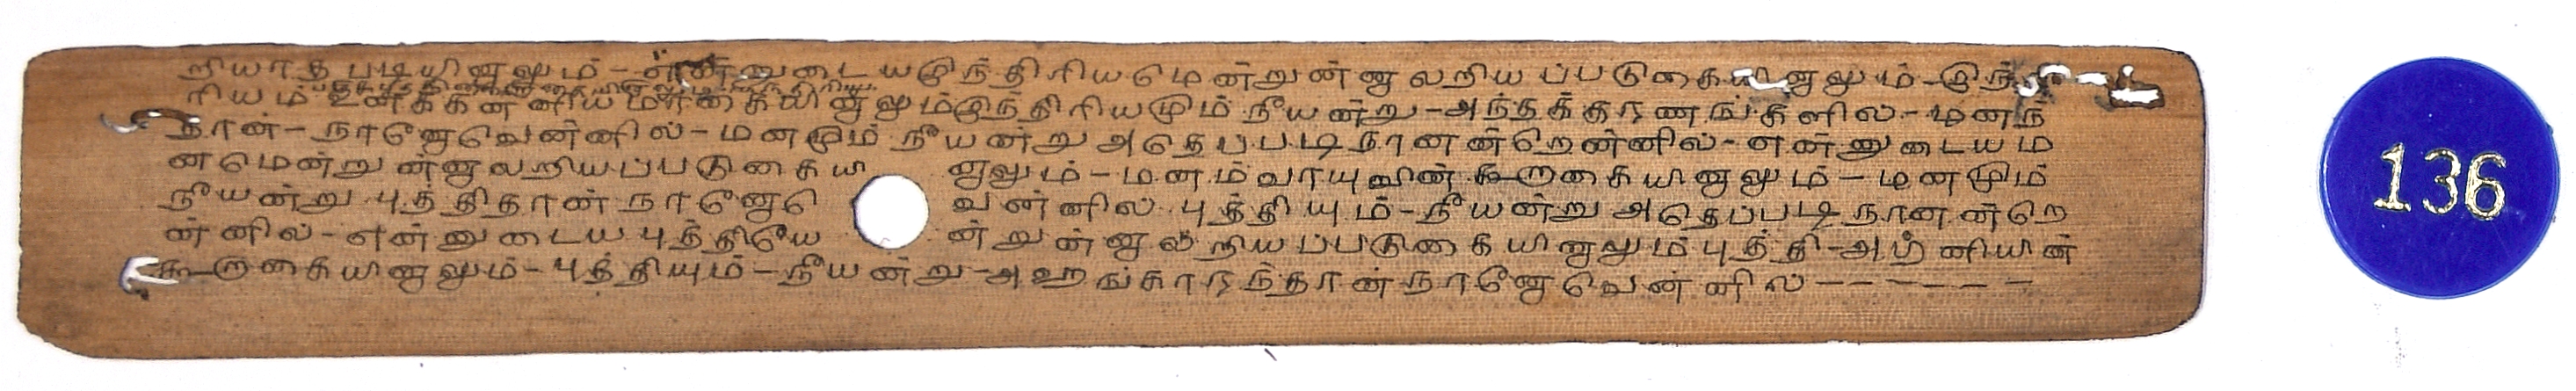 றியாத படியினாலும்-என்னுடையயிந்திரியமென்றுன்னாலறியப்படுகையினாலும்-யிந்
ரியம் உனக்கன்னியமாகையினாலும்யிந்திரியமும் நீயன்று-அந்தக்கரணங்களில்-மனந்
தான்-நானேவென்னில்-மனமும் நீயன்று அதெப்படிநானன்றென்னில்-என்னுடையம
னமென்றுன்னாலறியப்படுகையி னாலும்-மனம்வாயுவின் கூறுகையினாலும்-மனமும்
நீயன்று புத்திதான் நானே வென்னில் புத்தியும்-நீயன்று அதெப்படி நானன்றெ
ன்னில்-என்னுடைய புத்தியே ன்றுன்னால்றியப்படுகையினாலும் புத்தி-அக்னியின்
கூறுகையினாலும்-புத்தியும்-நீயன்று-அஹங்காரந்தான்நானேவென்னில்------
136